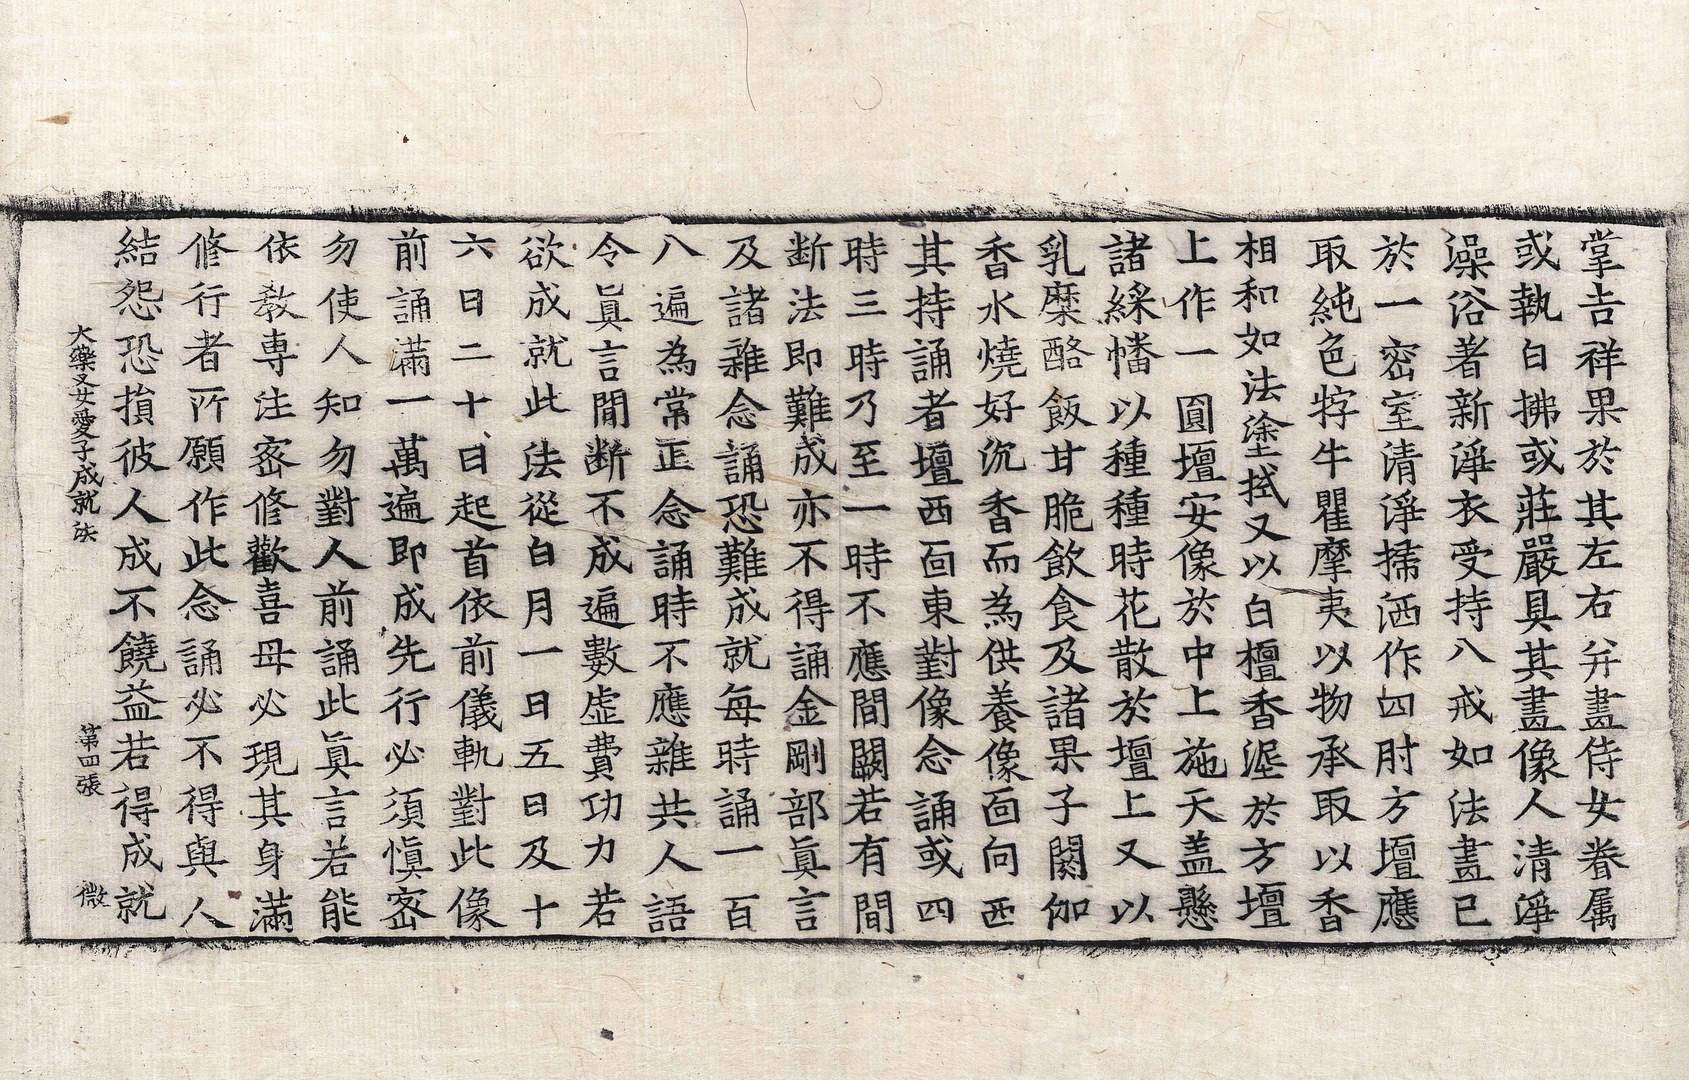 掌吉祥果於其左右并畫侍女眷屬
或執白拂或莊嚴具其畫像人清淨
澡浴著新淨衣受持八戒如法畫已
於一密室清淨掃洒作四肘方壇應
取純色牸牛瞿摩夷以物承取以香
相和如法塗拭又以白檀香埿於方壇
上作一圓壇安像於中上施天蓋懸
諸綵幡以種種時花散於壇上又以
乳糜酪飯甘脆飲食及諸果子閼伽
香水燒好沉香而為供養像面向西
其持誦者壇西面東對像念誦或四
時三時乃至一時不應間闕若有間
斷法即難成亦不得誦金剛部眞言
及諸雜念誦恐難成就每時誦一百
八遍為常正念誦時不應雜共人語
令眞言間斷不成遍數虛費功力若
欲成就此法從白月一日五日及十
六日二十日起首依前儀軌對此像
前誦滿一萬遍即成先行必須愼密
勿使人知勿對人前誦此眞言若能
依教專注密修歡喜母必現其身滿
修行者所願作此念誦必不得與人
結怨恐損彼人成不饒益若得成就
大藥叉女愛子成就法 第四張 微